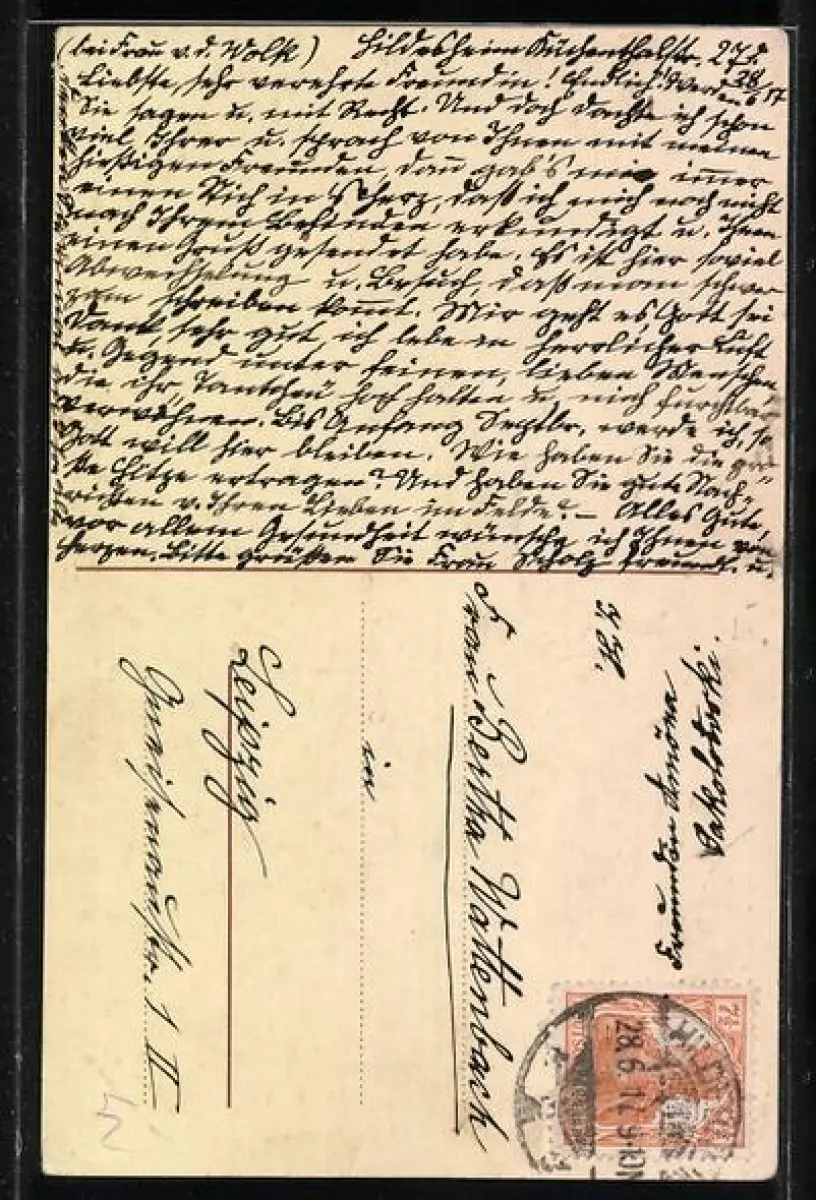 (bei Frau v. d. Wolk) Hildesheim Küchenthalstr. 27 I.
Liebste, sehr verehrte Freundin! Endlich! werden 28/6 17
Sie sagen u. mit Recht. Und doch dachte ich schon
viel Ihrer u. sprach von Ihnen mit meinen
hiesigen Freunden, dan gab's mir immer
einen Stich in's Herz, daß ich mich noch nicht
nach Ihrem Befinden erkundigt u. Ihnen
einen Gruß gesendet habe. Es ist hier soviel
Abwechselung u. Besuch, daß man schwer
zum schreiben kommt. Mir geht es, Gott sei
Dank, sehr gut, ich lebe in herrlicher Luft
u. Gegend unter feinen, lieben Menschen,
die ihr "Tantchen" hoch halten u. mich furchtbar
verwöhnen. Bis Anfang Septbr. werde ich, so
Gott will hier bleiben. Wie haben Sie die gro-
ße Hitze ertragen? Und haben Sie gute Nach-
richten v. Ihren Lieben im Felde? – Alles Gute,
vor allem Gesundheit wünsche ich Ihnen von
Herzen. Bitte grüßen Sie Frau Scholz freundl. u.
Freundin
Frau Bertha Wattenbach
in
Leipzig
Gneisenaustr. 1 II
7½
28.6.17.9-10N